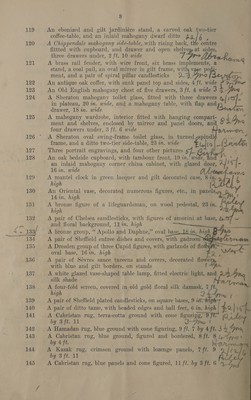 9
119 An ebonised and gilt jardinière stand, a carved oak two-tier
coffee-table, and an inlaid mahogany dwarf ditto
120 A Chippendale mahogany side-table, with rising back, the centre
fitted with cupboard, and drawer and open shelves at sides,
three drawers under, 2 ft. 10 wide
121 A brass rail fender, with wire front, six brass implements, a
stand, a coal pail, an oval mirror in gilt frame,
ment, and a pair of spiral pillar candlesticks
122 An antique oak coffer, with arch panel top and sides, 4 ft. wide
123 An Old English mahogany chest of five drawers, 3 ft. 4 wide
124 A Sheraton mahogany toilet glass, fitted with three drawers
in plateau, 20 in. wide, and a mahogany table, with flap and
drawer, 18 in. wide
125 A mahogany wardrobe, interior fitted with hanging compart-
ment and shelves, enclosed by mirror and panel doors, and
four drawers under, 5 ft. 6 wide
126 A Sheraton oval swing-frame toilet glass, in turned
frame, and a ditto two-tier side-table, 23 in. wide
127 Three portrait engravings, and four other pictures
128 An oak bedside cupboard, with tambour front, 19 in. wide, and
an inlaid mahogany corner china cabinet, with glazed door,
19 in. wide
129 A mantel clock in green lacquer and gilt decorated case, 8 in.
high
130 An Oriental vase, decorated numerous figures, etc., in panels,
14 in. high
131 A bronze figure of a lithographsman, on wood pedestal, 23 in.
high
132 A pair of Chelsea candlesticks, with figures of musicians at base,
and floral background, 11 in. high
133 A bronze group, "Apollo and Daphne," oval base, 18 in. high
134 A pair of Sheffield entrée dishes and covers, with gadroon
135 A Dresden group of three Cupid figures, with garlands of
oval base, 16 in. high
136 A pair of Sèvres sauce tureens and covers, decorated flowers,
with blue and gilt borders, on stands
137 A white glazed vase-shaped table lamp, fitted electric light, and
silk shade
138 A four-fold screen, covered in old gold floral silk damask, 7 ft.
high
139 A pair of Sheffield plated candlesticks, on square bases, 9 in. high
140 A pair of ditto tazze, with beaded edges and ball feet, 6 in. high
141 A Cabristan rug, terra-cotta ground with cone figuring,
by 3 ft. 11
142 A Hamadan rug, blue ground with cone figuring, 9 ft. 7 by 4 ft.
143 A Cabristan rug, blue ground, figured and bordered, 8 ft.
by 4 ft.
144 A Kazak rug, crimson ground with lozenge panels, 7 ft. 9
by 3 ft. 11
145 A Cabristan rug, blue panels and cone figured, 11 ft. by 3 ft. 6